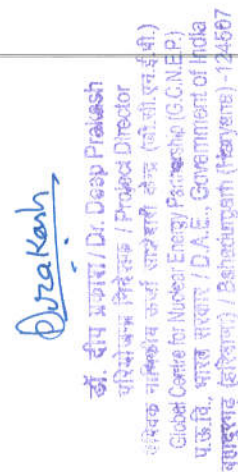 Prakash
डॉ. दीप प्रकाश / Dr. Deep Prakash
परियोजना निदेशक / Project Director
वैश्विक नाभिकीय ऊर्जा साझेदारी केन्द्र (जी.सी.एन.ई.पी.)
Global Centre for Nuclear Energy Partnership (G.C.N.E.P.)
प.ऊ.वि., भारत सरकार / D.A.E., Government of India
बहादुरगढ़ (हरियाणा) / Bahadurgarh (Haryana) - 124507